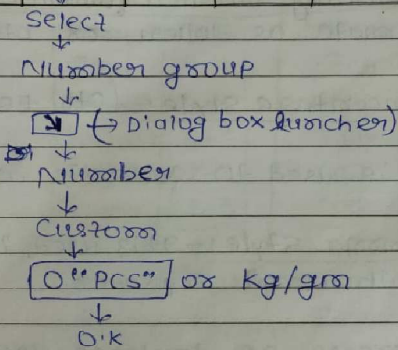 Select
↓
Number group
↓
↘ (→ Dialog box luncher)
↓
Number
↓
Custom
↓
0 "PCS" or kg/gm
↓
O.K